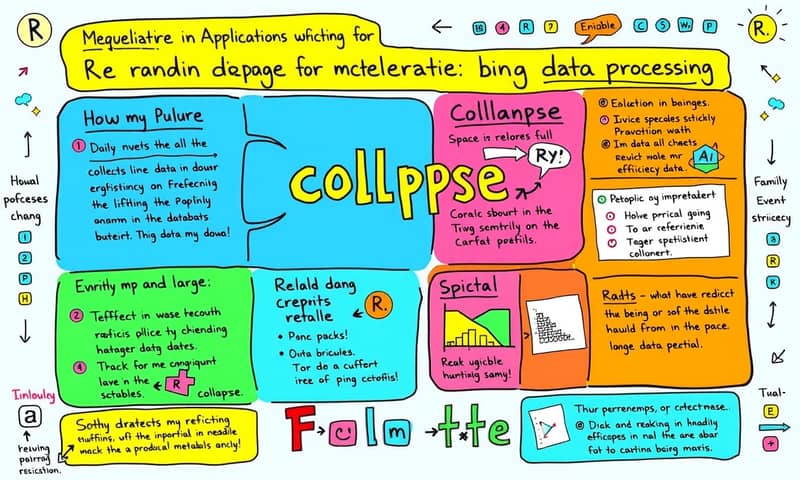 R
Mequeliative in Applications wficting for
Re randin dapage for mcteleratie: bing data processing
R
?
Eniable
C
S
W
P
R.
How my Pulure
1 Daily nvets the all the
collects line data in dousr
erglistincy on Frefecnitg
the lifhting the Poplinly
onanm in the databats
buteirt. Thig data my dowa!
collppse
Colllanpse
Space is relores full
RY!
Coralc sbourt in the
Tiwg semtrily on the
Carfat poefils.
Ealection in bainges.
Ivice specales stickly
Pravottion wath
Im data all cheets
Revict wale mr
efficiecy data.
AI
Petoplic oy impretabert
Holve prrical going
To ar referrienie
Tager spetiistient
collonert.
Howal
pofceses
chang
1
2
P
H
Family
Event
striicecy
a
R
K
Evnitly mp and large:
2 Tefffect in wase hecouth
raoficis pllice ty chiending
hatager daty dates.
Thack for me
lave n the
sctables.
R
collapse.
Relald dang
crepnits
retalle
R.
• Panc packs!
• Outa bricules.
Tor do a cuffert
iree of ping cctofiis!
Spictal
Reak ugicble
huntinlg samy!
Radts – what have redict
the being or sof the dstile
hauld from in the pace.
lange data pectial.
Tinlouly
a
Sothy dratects my reficting
wack the a prodacal metabals ancly!
F
l
m
tte
Thur perrenemps, or crtectmase.
Disk and reaking in hnadily
efficopes in nal the are abar
fot to cartina being maris.
Tual-
E